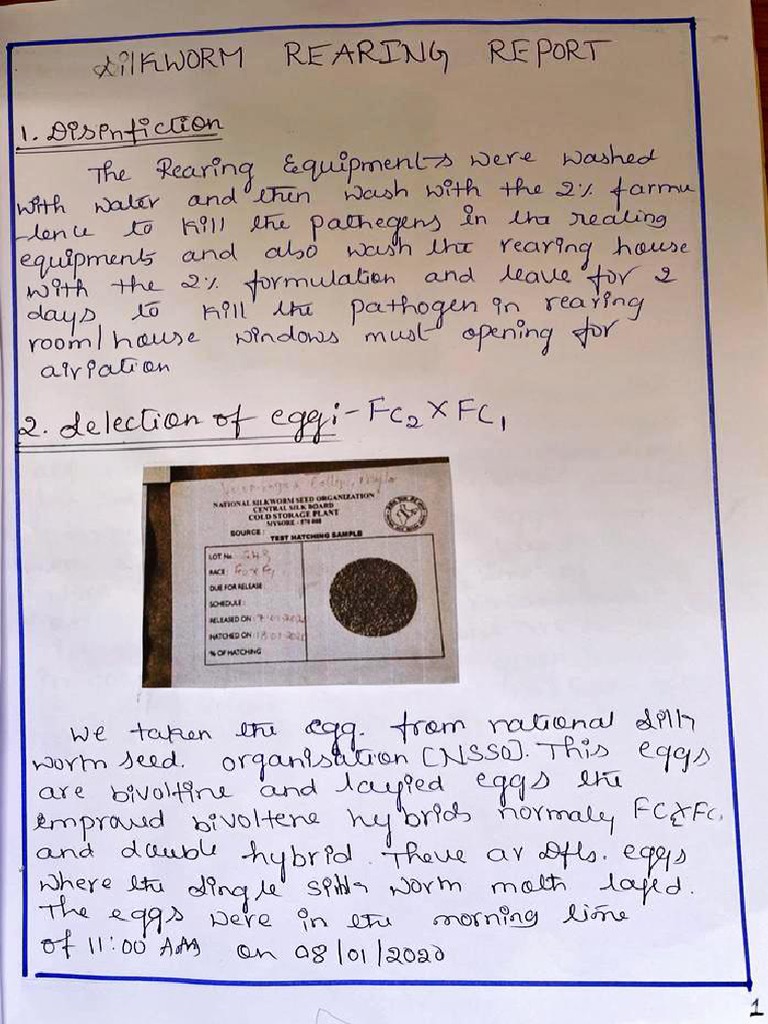 SilKWORM REARING REPORT
1. Disinfiction
The Rearing Equipments were washed
with water and then wash with the 2% farmu
-lence to kill the pathegens in the reating
equipments and also wash the rearing house
with the 2% formulation and leave for 2
days to kill the pathogen in rearing
room/house windows must opening for
airiation
2. Selection of egg:- FC2 X FC1
NATIONAL SILKWORM SEED ORGANIZATION
CENTRAL SILK BOARD
COLD STORAGE PLANT
MYSORE - 570 008
SOURCE:
TEST HATCHING SAMPLE
LOT No.
RACE:
DUE FOR RELEASE
SCHEDULE:
RELEASED ON:
HATCHED ON:
% OF HATCHING
We taken the egg. from national Silk
worm seed. organisation [NSSO]. This eggs
are bivoltine and layied eggs the
emproved bivoltene hybrids normaly FC2xFC1
and double hybrid. These ar Dfls. eggs
where the Single silk worm moth layed.
The eggs were in the morning time
of 11:00 AM on 08/01/2020
1